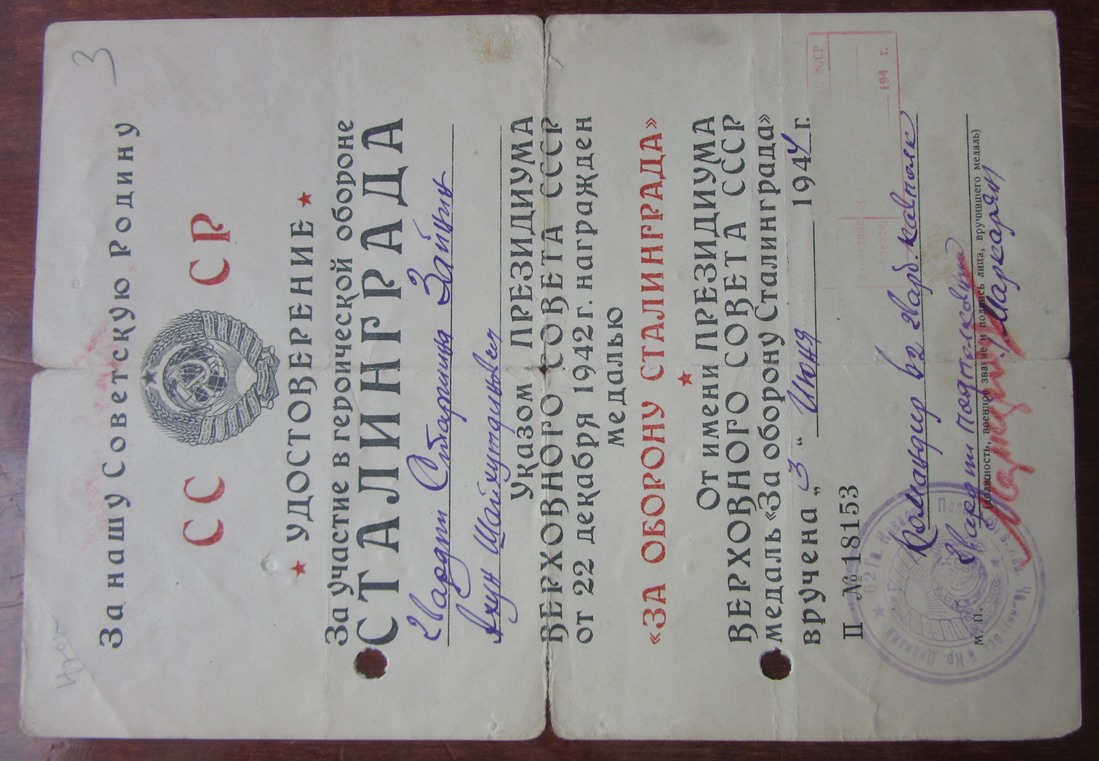 3
За нашу Советскую Родину
СС СР
УДОСТОВЕРЕНИЕ
За участие в героической обороне
СТАЛИНГРАДА
Гвардии Старшина Зайнин
Ахун Шайхутдинович
Указом ПРЕЗИДИУМА
ВЕРХОВНОГО СОВЕТА СССР
от 22 декабря 1942 г. награжден
медалью
«ЗА ОБОРОНУ СТАЛИНГРАДА»
От имени ПРЕЗИДИУМА
ВЕРХОВНОГО СОВЕТА СССР
медаль «За оборону Сталинграда»
вручена „3“ Июня 1944 г.
П № 18153
194 г.
Командир 62 Гвард. кавполка
Гвардии Подполковник
М. П. (должность, военное звание и подпись лица, вручившего медаль)
/Маркарян